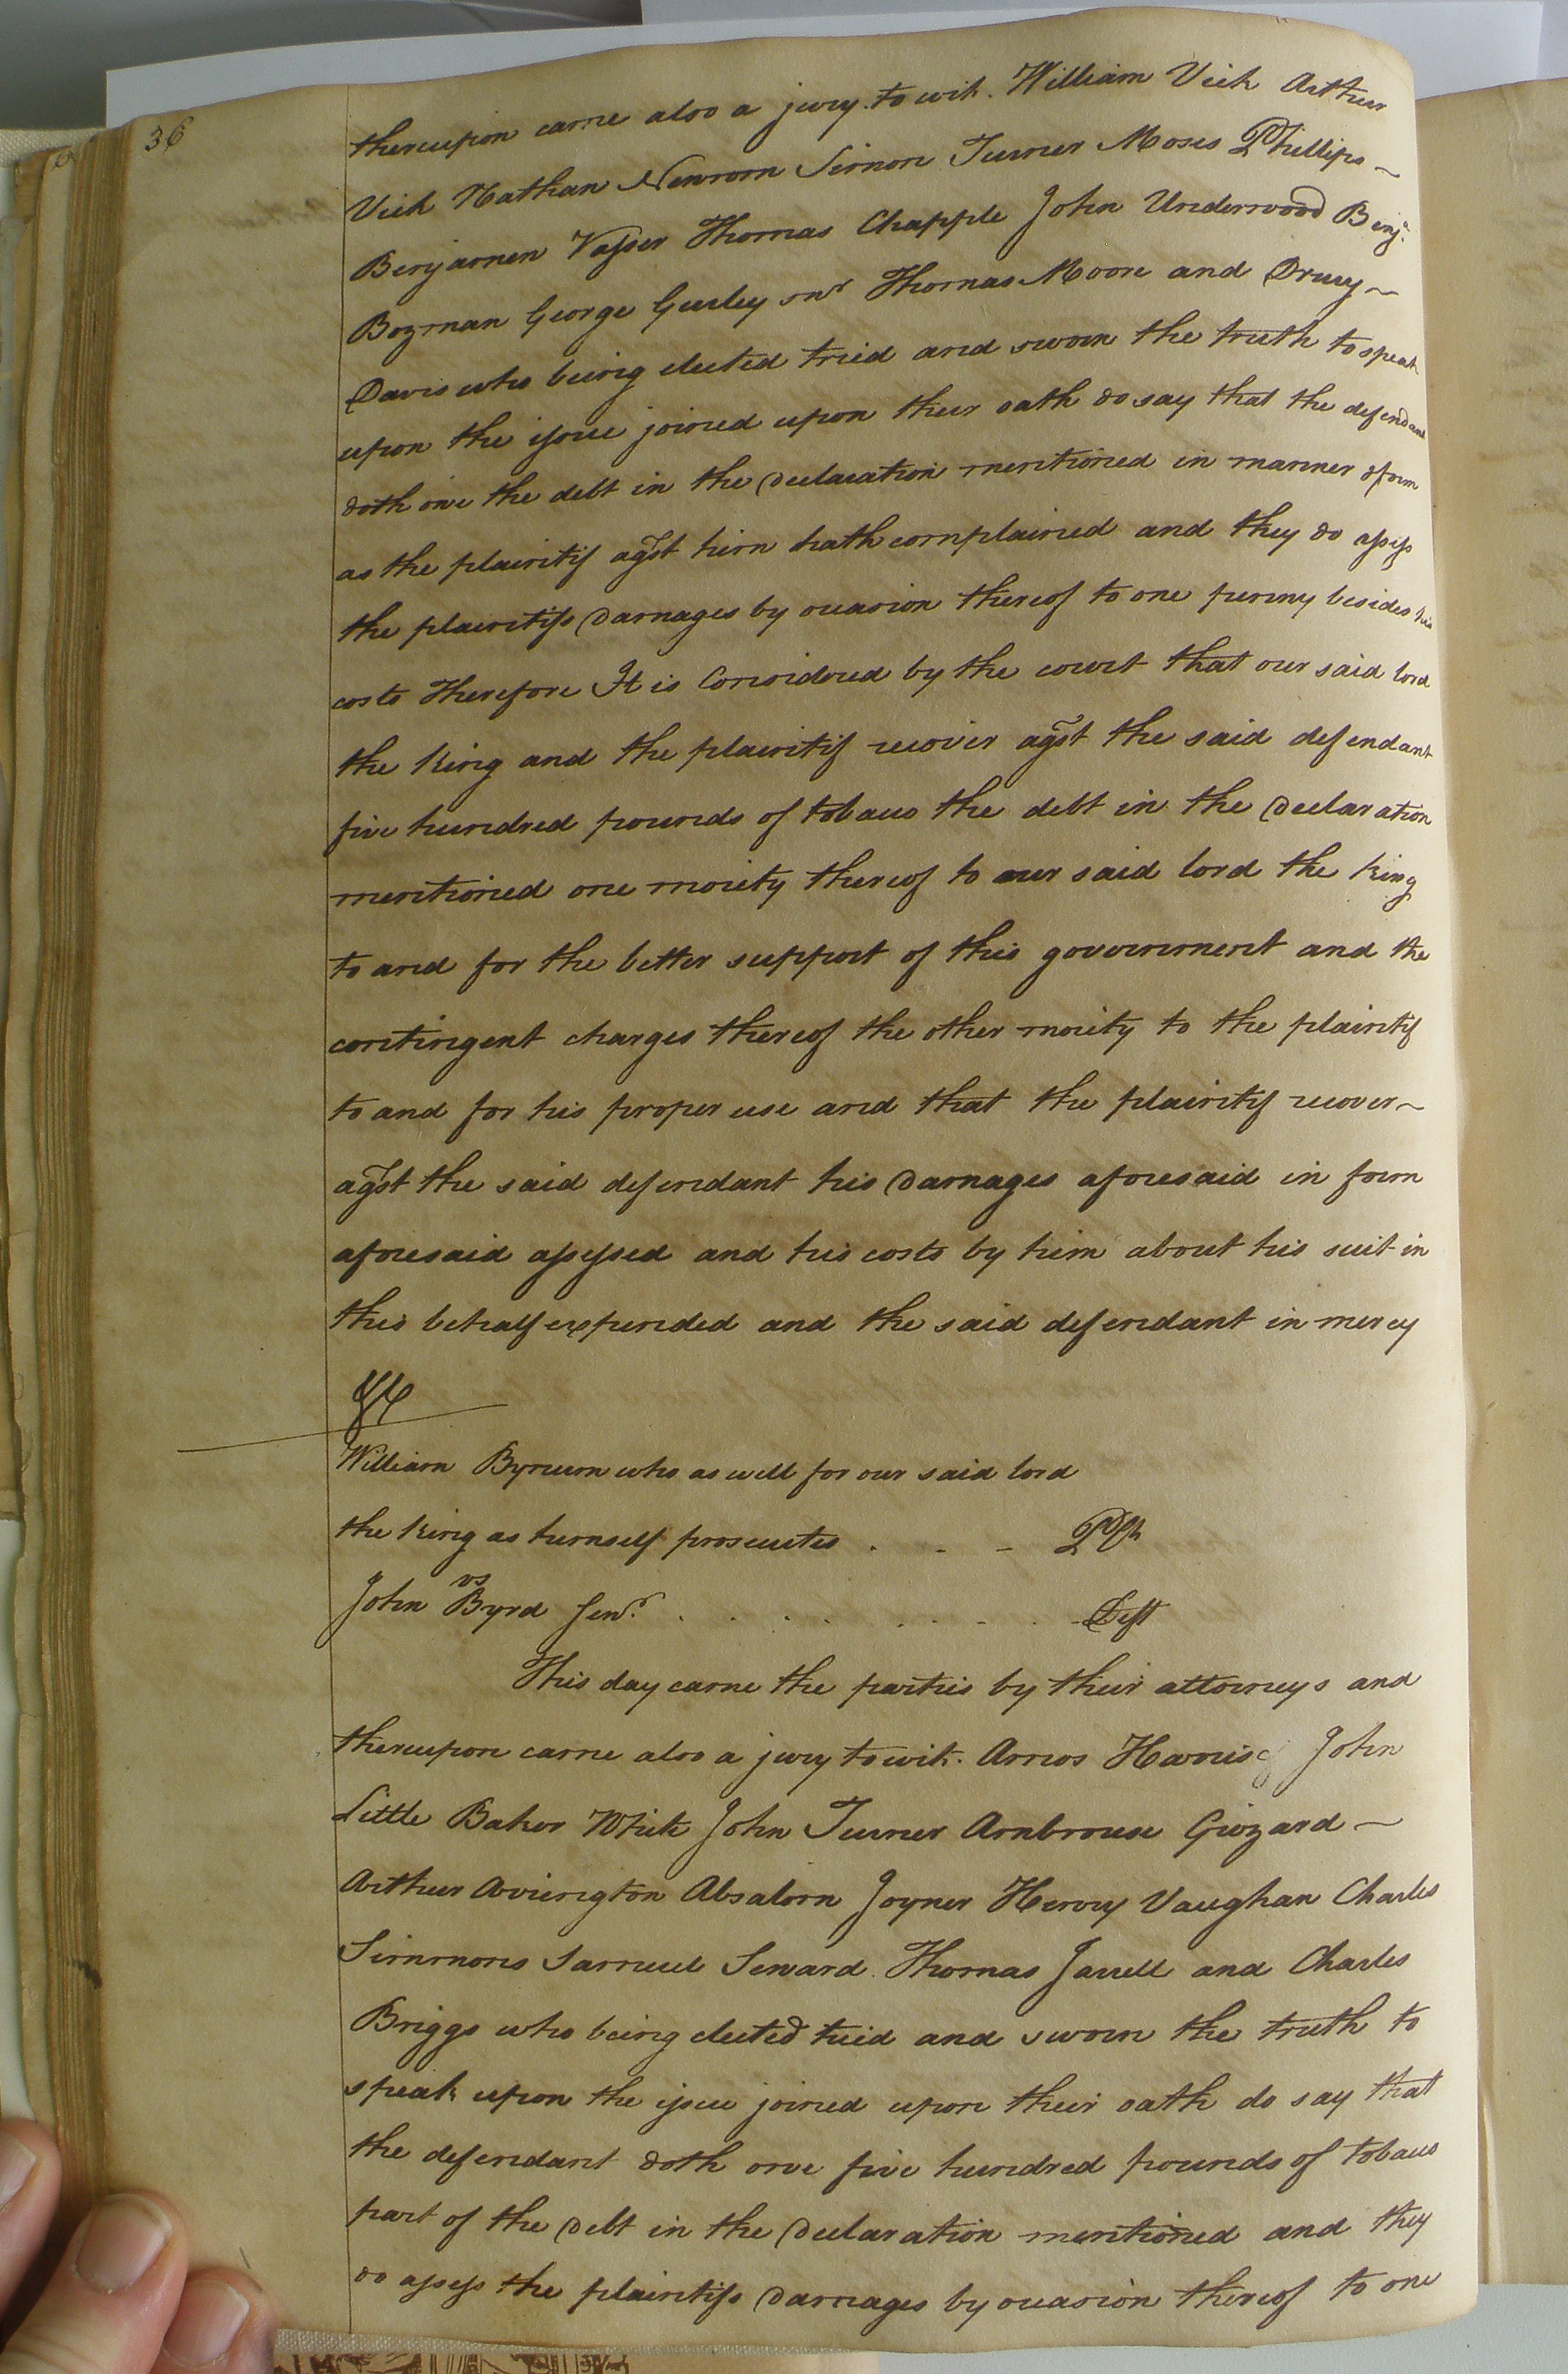 36
thereupon came also a jury to wit. William Vick Arthur
Vick Nathan Newsom Simon Turner Moses Phillips
Benjamen Vasser Thomas Chapple John Underwood Benja.
Bozman George Gurley snr Thomas Moore and Drury
Davis who being elected tried and sworn the truth to speak
upon the issue joined upon their oath do say that the defendant
doth owe the debt in the declaration mentioned in manner & form
as the plaintif agst him hath complained and they do assess
the plaintifs damages by occasion thereof to one penny besides his
costs Therefore It is Considered by the court that our said lord
the King and the plaintif recover agst the said defendant
five hundred pounds of tobacco the debt in the declaration
mentioned one moiety thereof to our said lord the King
to and for the better support of this government and the
contingent charges thereof the other moiety to the plaintif
to and for his proper use and that the plaintif recover
agst the said defendant his damages aforesaid in form
aforesaid assessed and his costs by him about his suit in
this behalf expended and the said defendant in mercy
&c
William Bynum who as well for our said lord
the King as himself prosecutes . - - Plt
vs
John Byrd Senr. . . . . . - . - Deft
This day came the parties by their attorneys and
thereupon came also a jury to wit. Amos Harris John
Little Baker White John Turner Ambrouse Grizard
Arthur Arrington Absalom Joyner Henry Vaughan Charles
Simmons Samuel Seward Thomas Jarrell and Charles
Briggs who being elected tried and sworn the truth to
speak upon the issue joined upon their oath do say that
the defendant doth owe five hundred pounds of tobacco
part of the debt in the declaration mentioned and they
do assess the plaintifs damages by occasion thereof to one